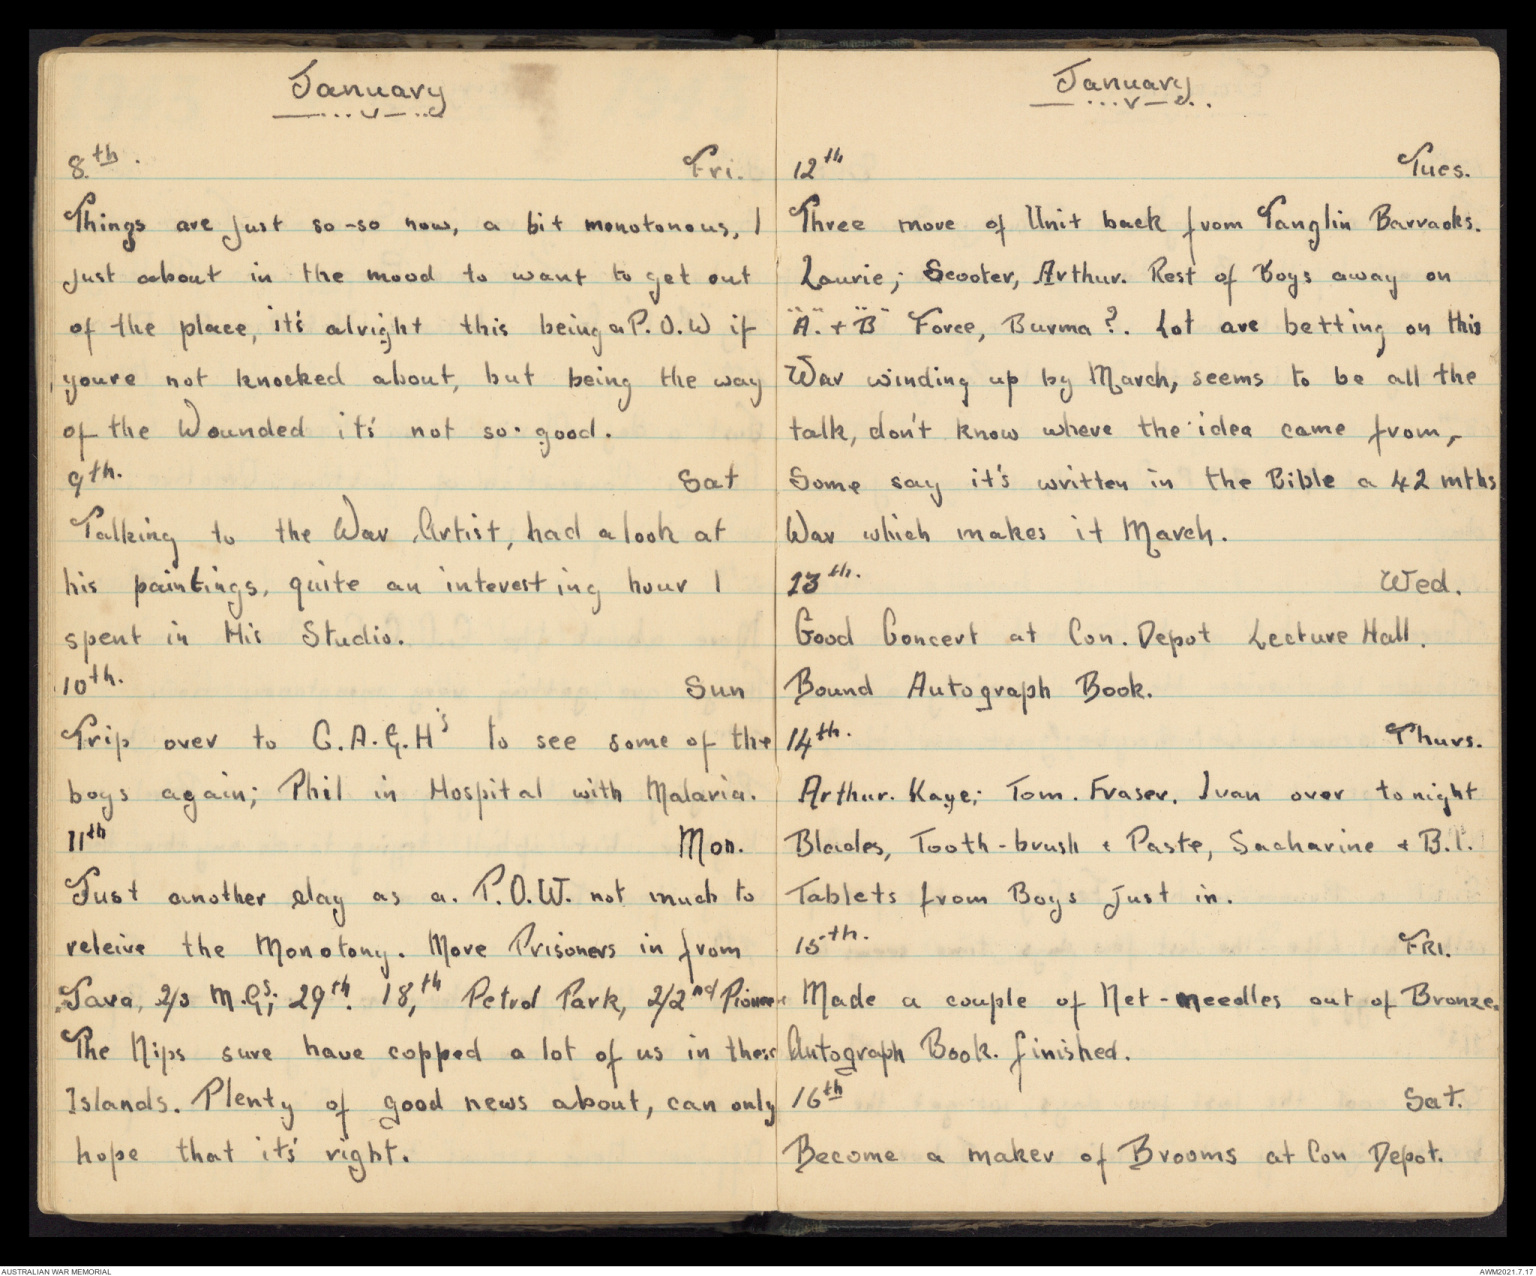 January
8th. Fri.
Things are just so-so now, a bit monotonous, I
just about in the mood to want to get out
of the place, it's alright this being a P.O.W if
youre not knocked about, but being the way
of the Wounded it's not so good.
9th. Sat
Talking to the War Artist, had a look at
his paintings, quite an interesting hour I
spent in His Studio.
10th. Sun
Trip over to C.A.G.H's to see some of the
boys again; Phil in Hospital with Malaria.
11th Mon.
Just another day as a. P.O.W. not much to
releive the Monotony. More Prisoners in from
Java, 2/3 M.Gs; 29th. 18th, Petrol Park, 2/2nd Pioneer
The Nips sure have copped a lot of us in these
Islands. Plenty of good news about, can only
hope that it's right.
January
12th Tues.
Three more of Unit back from Tanglin Barracks.
Laurie; Scooter, Arthur. Rest of Boys away on
"A". + "B" Force, Burma?. Lot are betting on this
War winding up by March, seems to be all the
talk, don't know where the idea came from,
Some say it's written in the Bible a 42 mths
War which makes it March.
13th. Wed.
Good Concert at Con. Depot Lecture Hall.
Bound Autograph Book.
14th. Thurs.
Arthur. Kaye; Tom. Fraser. Ivan over tonight
Blades, Tooth-brush & Paste, Sacharine & B.1.
Tablets from Boys just in.
15th. FRI.
Made a couple of Net-needles out of Bronze.
Autograph Book. finished.
16th Sat.
Become a maker of Brooms at Con Depot.
AUSTRALIAN WAR MEMORIAL
AWM2021.7.17